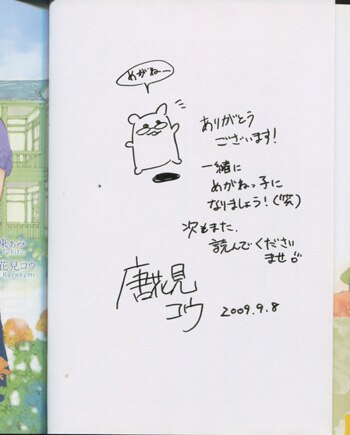 めがねー
ありがとう
ございます!
一緒に
めがねっ子に
なりましょう!(笑)
次もまた、
読んでください
ませ。
唐花見
コウ
2009.9.8
東あみ
花見コウ
Karakemi